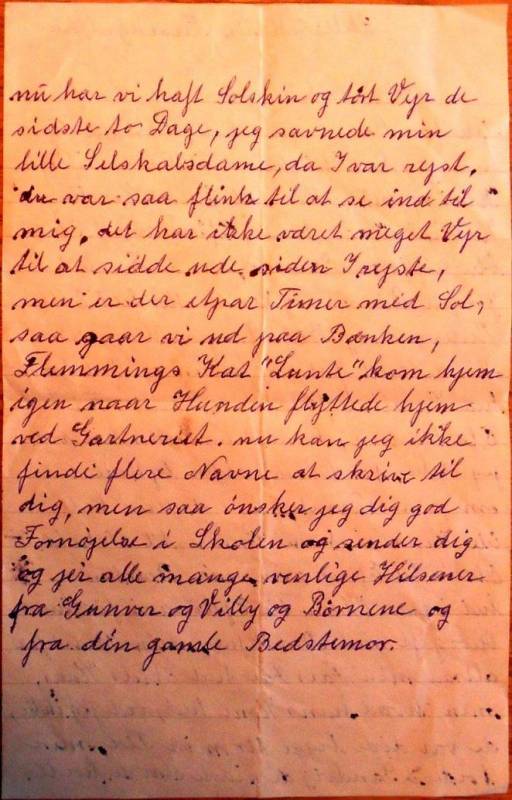 nu har vi haft Solskin og tört Vejr de
sidste to Dage, jeg savnede min
lille Selskabsdame, da I var rejst.
du var saa flink til at se ind til
mig, det har ikke været meget Vejr
til at sidde ude siden I rejste,
men er der etpar Timer med Sol,
saa gaar vi ud paa Bænken,
Flemmings Kat "Lunte" kom hjem
igen naar Hunden flyttede hjem
ved Gartneriet. nu kan jeg ikke
finde flere Navne at skrive til
dig, men saa önsker jeg dig god
Fornöjelse i Skolen og sender dig
og jer alle mange venlige Hilsener
fra Gunver og Villy og Börnene og
fra den gamle Bedstemor.